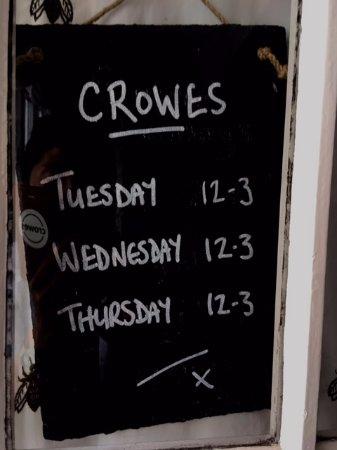 CROWES
TUESDAY 12-3
WEDNESDAY 12-3
THURSDAY 12-3
x